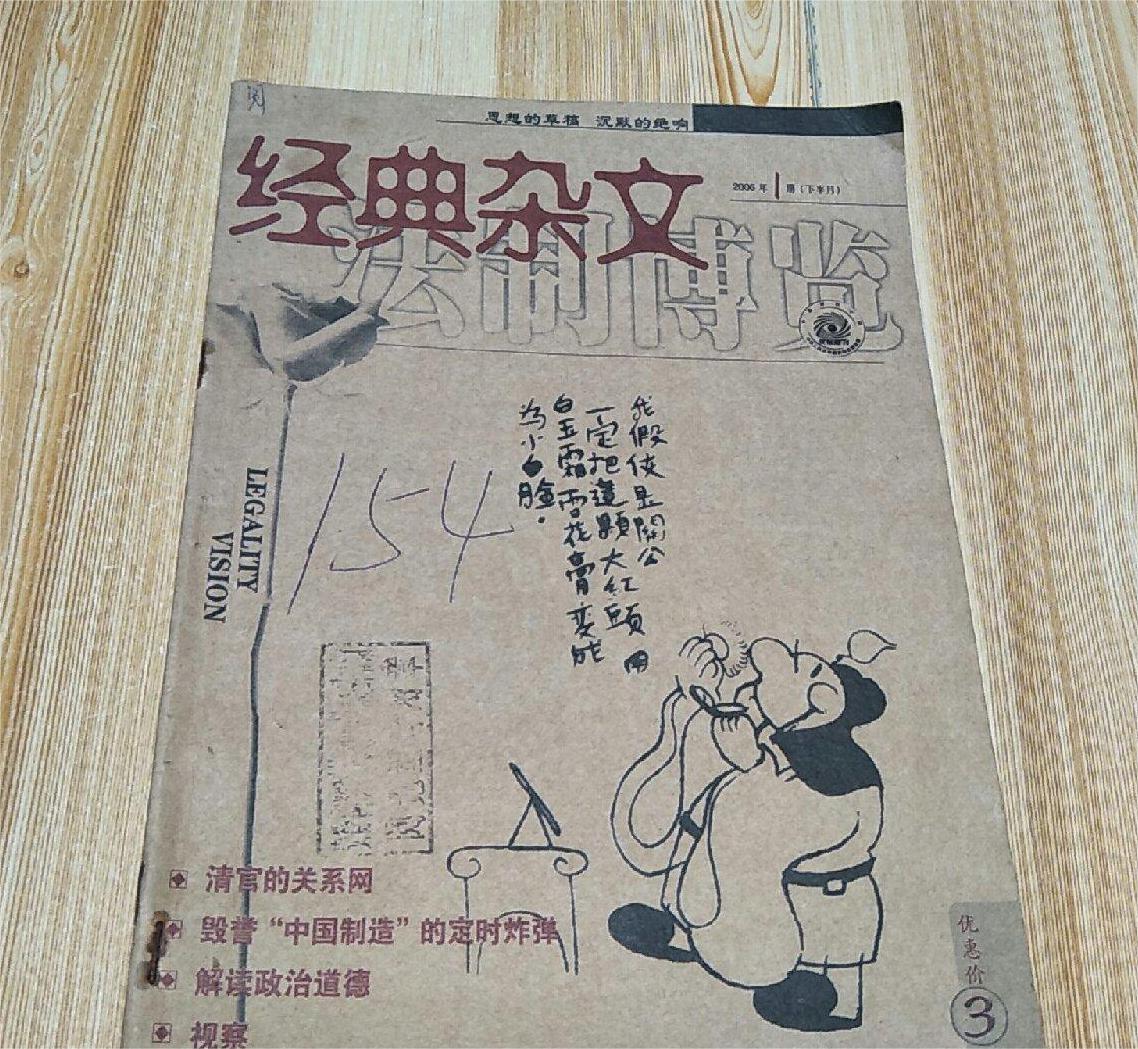 阅
思想的草稿 沉默的绝响
经典杂文
2006 年 1 期(下半月)
法制博览
LEGALITY
VISION
154
我假使是關公
一定把這顆大紅頭 用
白玉霜雪花膏变成
为小白臉.
清官的关系网
毁誉“中国制造”的定时炸弹
解读政治道德
视察
优惠价
3